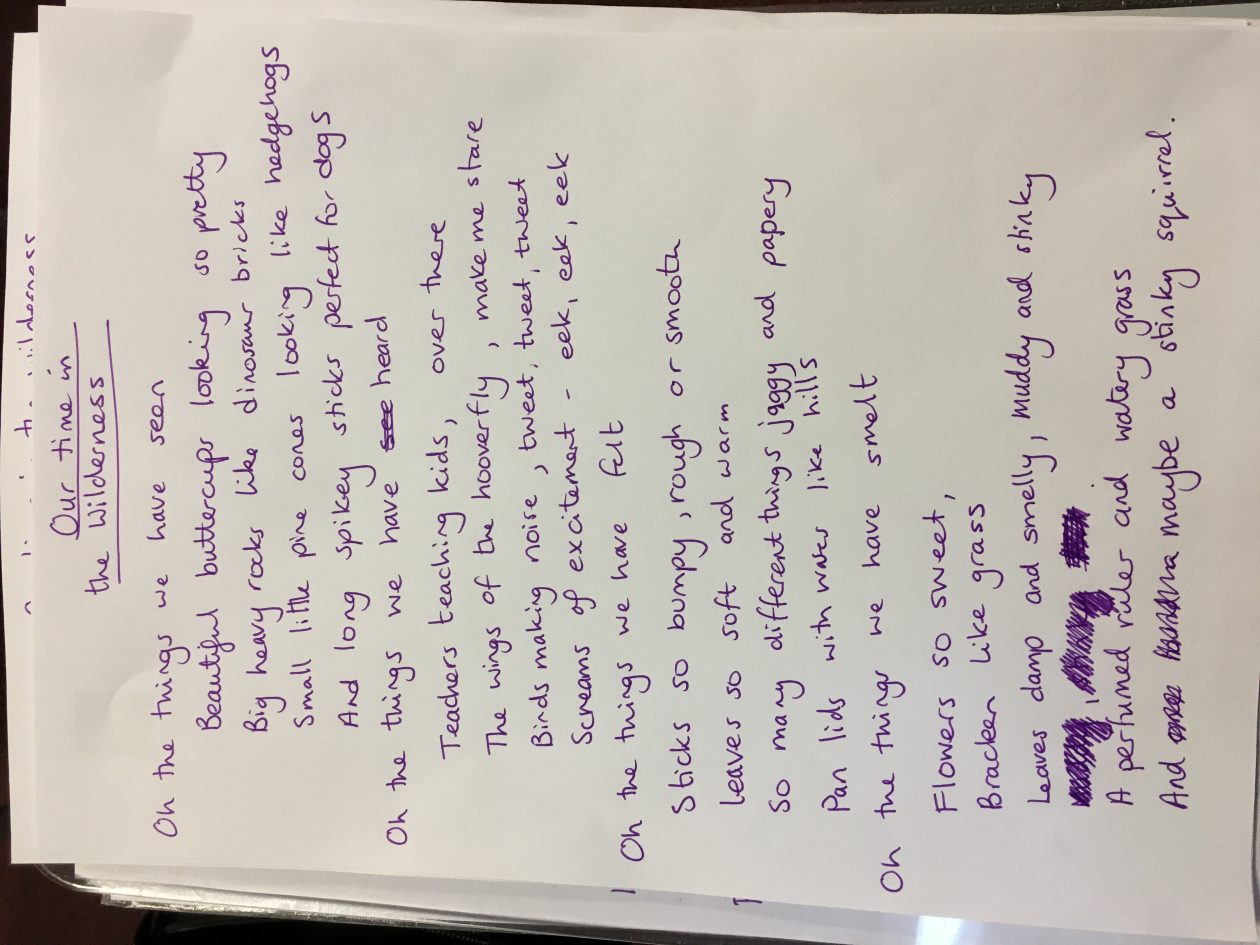 Our time in
the Wilderness
Oh the things we have seen
Beautiful buttercups looking so pretty
Big heavy rocks like dinosaur bricks
Small little pine cones looking like hedgehogs
And long spikey sticks perfect for dogs
Oh the things we have see heard
Teachers teaching kids, over there
The wings of the hooverfly, make me stare
Birds making noise, tweet, tweet, tweet, tweet
Screams of excitement - eek, eek, eek, eek
Oh the things we have felt
Sticks so bumpy, rough or smooth
leaves so soft and warm
So many different things jaggy and papery
Pan lids with water like hills
Oh the things we have smelt
Flowers so sweet,
Bracken like grass
Leaves damp and smelly, muddy and stinky
A perfumed ruler and watery grass
And maybe a stinky squirrel.